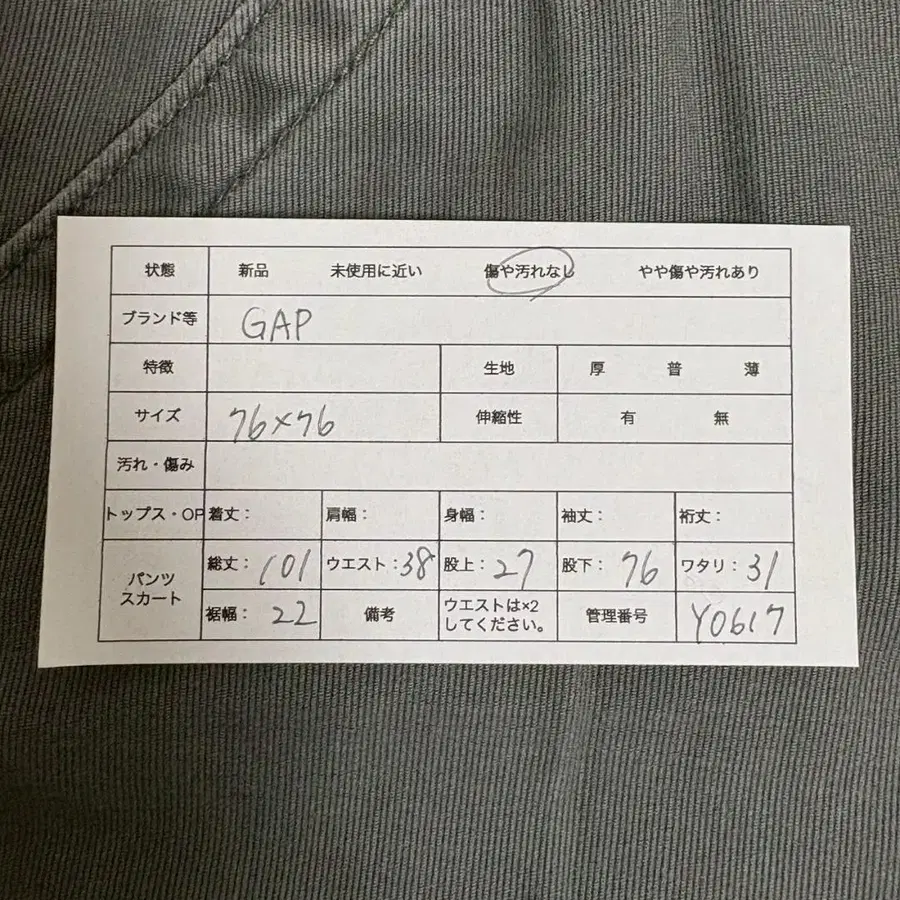 状態 新品 未使用に近い 傷や汚れなし やや傷や汚れあり
ブランド等 GAP
特徴 生地 厚 普 薄
サイズ 76×76 伸縮性 有 無
汚れ・傷み
トップス・OP 着丈： 肩幅： 身幅： 袖丈： 裄丈：
パンツ
スカート
総丈：101 ウエスト：38 股上：27 股下：76 ワタリ：31
裾幅：22 備考 ウエストは×2
してください。 管理番号 Y0617